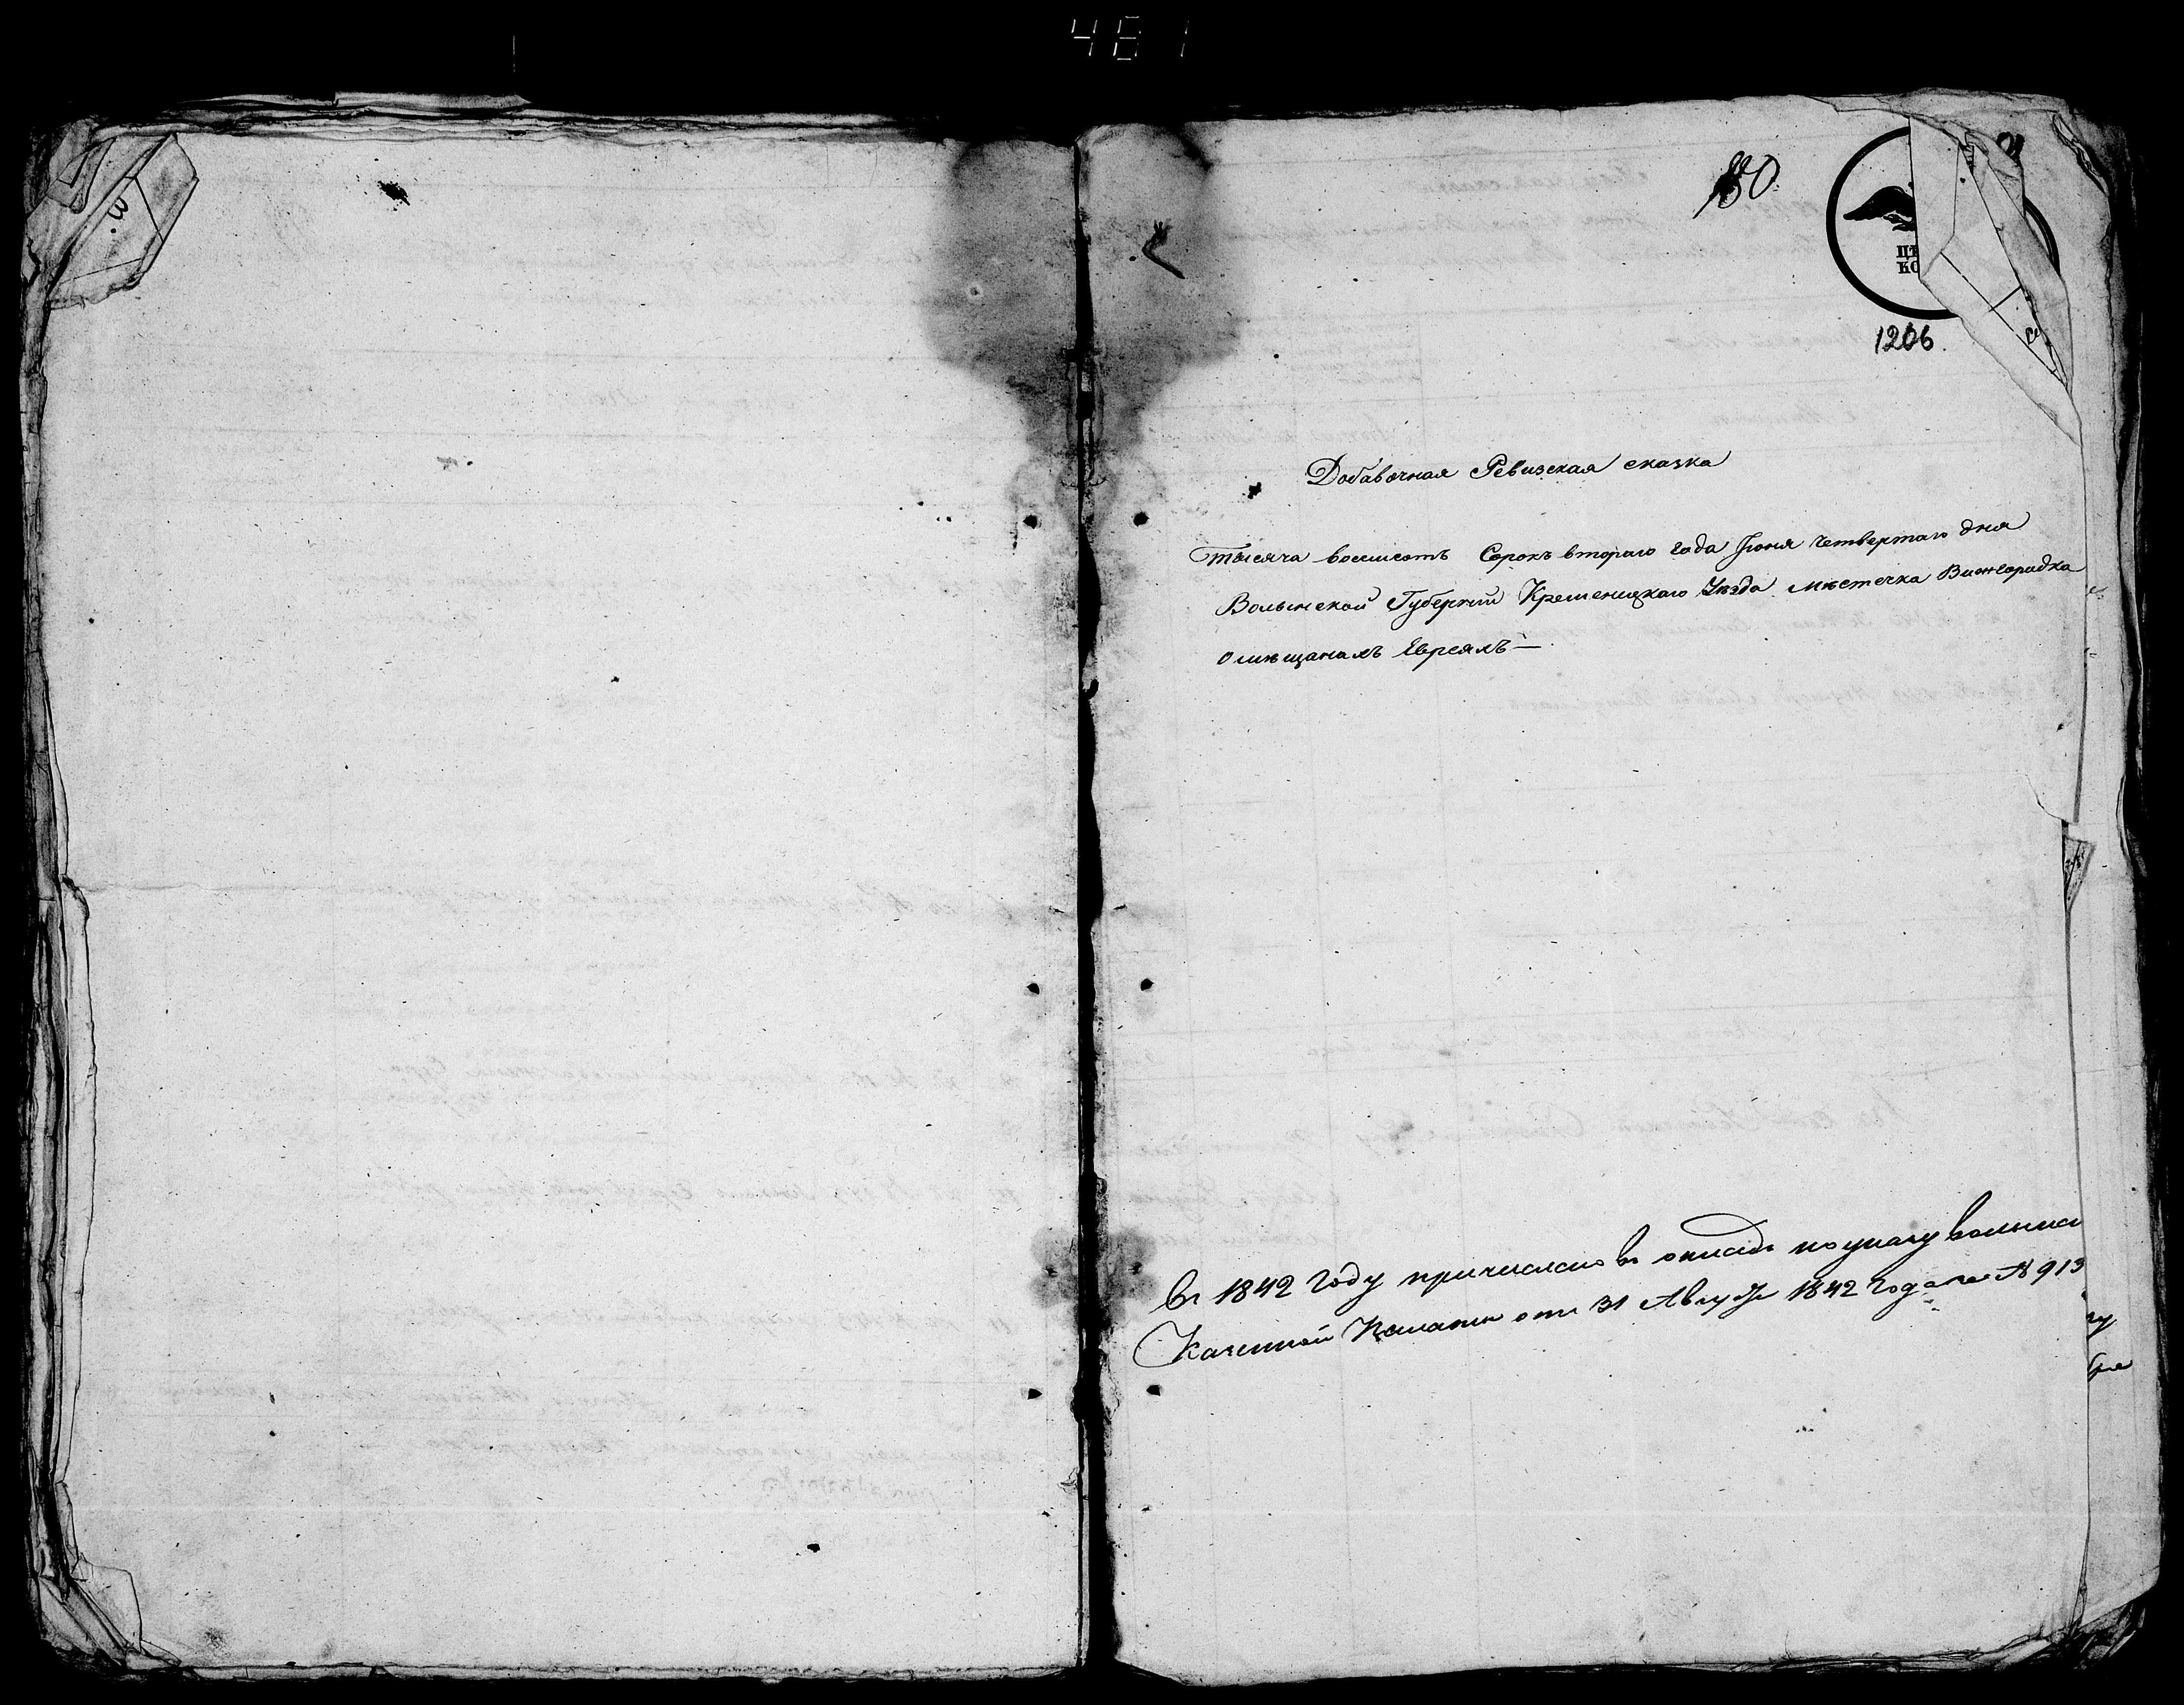 461
180
ЦѢ
КО
1206.
Добавочная Ревизская сказка
Тысяча восемсотъ Сорокъ втораго года Іюня четвертаго дня
Волынской Губерніи Кременецкаго Уѣзда мѣстечка Вижгородка
о мѣщанахъ Евреяхъ —
въ 1842 году причислено въ окладъ по указу волынск
Казенной Палаты отъ 31 Августа 1842 года № 913